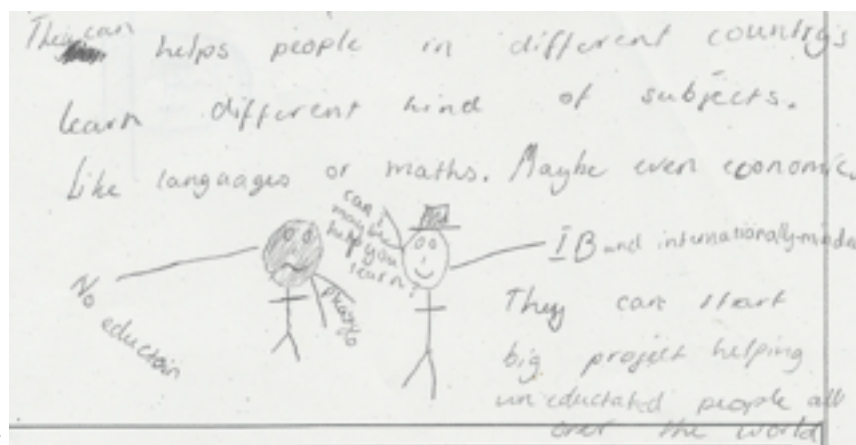 They can helps people in different country's
learn different kind of subjects.
Like languages or maths. Maybe even economic
can I
maybe
help you
learn?
No eductain
IB and internationally-minded
They can start
big project helping
uneductated people all
over the world